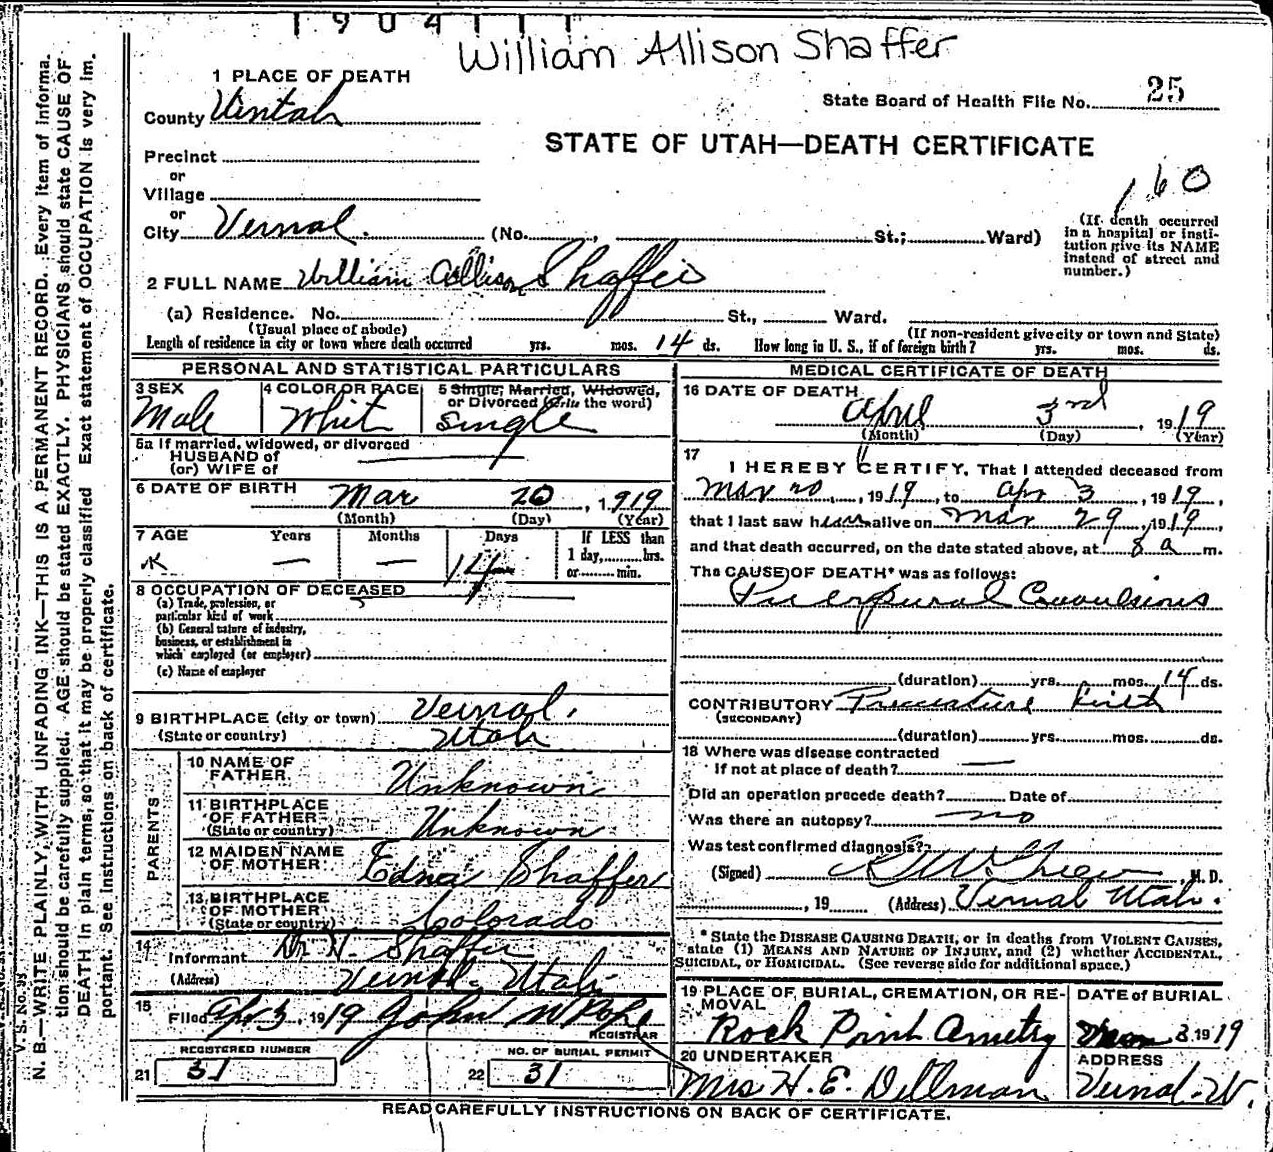 1904111
William Allison Shaffer
1 PLACE OF DEATH
County Uintah
State Board of Health File No. 25
STATE OF UTAH—DEATH CERTIFICATE
Precinct
or
Village
or
City Vernal. (No. , St.; Ward)
160
(If death occurred in a hospital or institution give its NAME instead of street and number.)
2 FULL NAME William Allison Shaffer
(a) Residence. No. St., Ward.
(Usual place of abode) (If non-resident give city or town and State)
Length of residence in city or town where death occurred yrs. mos. 14 ds. How long in U. S., if of foreign birth? yrs. mos. ds.
PERSONAL AND STATISTICAL PARTICULARS
3 SEX Male
4 COLOR OR RACE Whit
5 Single, Married, Widowed, or Divorced (write the word) Single
5a If married, widowed, or divorced
HUSBAND of
(or) WIFE of
6 DATE OF BIRTH Mar 20, 1919
(Month) (Day) (Year)
7 AGE Years — Months — Days 14 If LESS than 1 day, hrs. or min.
8 OCCUPATION OF DECEASED
(a) Trade, profession, or
particular kind of work
(b) General nature of industry,
business, or establishment in
which employed (or employer)
(c) Name of employer
9 BIRTHPLACE (city or town) Vernal.
(State or country) Utah
PARENTS
10 NAME OF FATHER. Unknown
11 BIRTHPLACE OF FATHER (State or country) Unknown
12 MAIDEN NAME OF MOTHER Edna Shaffer
13 BIRTHPLACE OF MOTHER (State or country) Colorado
14 Informant Shaffer
(Address) Vernal- Utah
15 Filed Apr 3, 1919 John W
REGISTRAR
REGISTERED NUMBER
21 31
NO. OF BURIAL PERMIT
22 31
MEDICAL CERTIFICATE OF DEATH
16 DATE OF DEATH
April 3rd, 1919
(Month) (Day) (Year)
17
I HEREBY CERTIFY, That I attended deceased from
Mar 20, 1919, to Apr 3, 1919,
that I last saw him alive on Mar 29, 1919,
and that death occurred, on the date stated above, at 8 a m.
The CAUSE OF DEATH* was as follows:
Puerpural Convulsions
(duration) yrs. mos. 14 ds.
CONTRIBUTORY Premature birth
(SECONDARY)
(duration) yrs. mos. ds.
18 Where was disease contracted
If not at place of death? —
Did an operation precede death? Date of
Was there an autopsy? no
Was test confirmed diagnosis?
(Signed) M. D.
, 19 (Address) Vernal Utah.
* State the DISEASE CAUSING DEATH, or in deaths from VIOLENT CAUSES,
state (1) MEANS AND NATURE OF INJURY, and (2) whether ACCIDENTAL,
SUICIDAL, OR HOMICIDAL. (See reverse side for additional space.)
19 PLACE OF BURIAL, CREMATION, OR REMOVAL
Rock Point
DATE of BURIAL
3 1919
20 UNDERTAKER
Mrs H. E. Dillman
ADDRESS
Vernal. U.
READ CAREFULLY INSTRUCTIONS ON BACK OF CERTIFICATE.
V. S. No. 99
N. B.—WRITE PLAINLY, WITH UNFADING INK—THIS IS A PERMANENT RECORD. Every item of informa-
tion should be carefully supplied. AGE should be stated EXACTLY. PHYSICIANS should state CAUSE OF
DEATH in plain terms, so that it may be properly classified Exact statement of OCCUPATION is very im-
portant. See instructions on back of certificate.